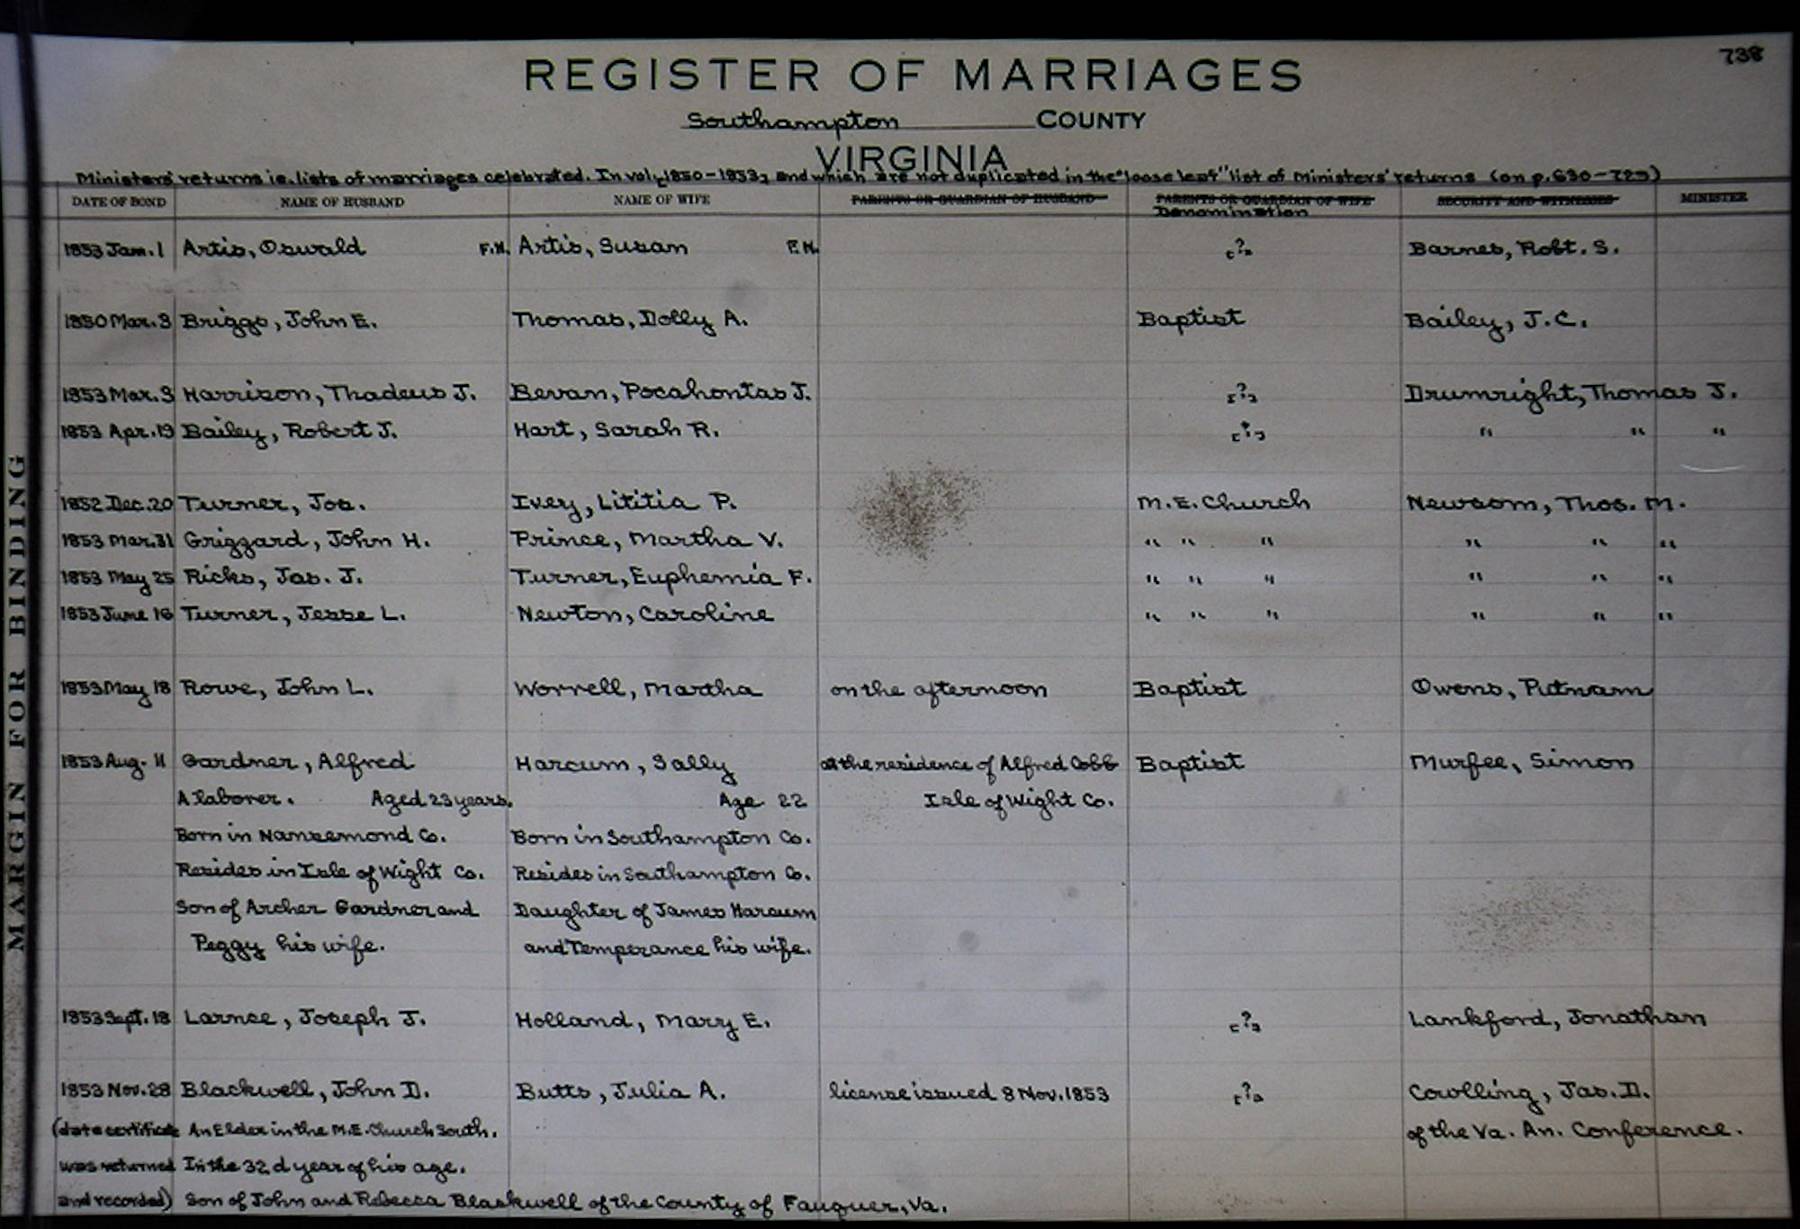 738
REGISTER OF MARRIAGES
Southampton COUNTY
VIRGINIA
Ministers' returns ie. lists of marriages celebrated. In vol. 1850-1853, and which are not duplicated in the "loose leaf" list of Ministers' returns (on p. 630-729)
DATE OF BOND NAME OF HUSBAND NAME OF WIFE PARENTS OR GUARDIAN OF HUSBAND PARENTS OR GUARDIAN OF WIFE SECURITY AND WITNESSES MINISTER
Denomination
1853 Jan. 1 Artis, Oswald F.N. Artis, Susan F.N. [?] Barnes, Robt. S.
1850 Mar. 3 Briggs, John E. Thomas, Dolly A. Baptist Bailey, J.C.
1853 Mar. 3 Harrison, Thadeus J. Bevan, Pocahontas J. [?] Drumright, Thomas J.
1853 Apr. 19 Bailey, Robert J. Hart, Sarah R. [?] " " "
1852 Dec. 20 Turner, Jos. Ivey, Lititia P. M.E. Church Newsom, Thos. M.
1853 Mar. 31 Grizzard, John H. Prince, Martha V. " " " " " "
1853 May 25 Ricks, Jas. J. Turner, Euphemia F. " " " " " "
1853 June 16 Turner, Jesse L. Newton, Caroline " " " " " "
1853 May 18 Rowe, John L. Worrell, Martha on the afternoon Baptist Owens, Putnam
1853 Aug. 11 Gardner, Alfred Harcum, Sally at the residence of Alfred Cobb Baptist Murfee, Simon
A laborer. Aged 23 years. Age 22 Isle of Wight Co.
Born in Nansemond Co. Born in Southampton Co.
Resides in Isle of Wight Co. Resides in Southampton Co.
Son of Archer Gardner and Daughter of James Harcum
Peggy his wife. and Temperance his wife.
1853 Sept. 18 Larnce, Joseph J. Holland, Mary E. [?] Lankford, Jonathan
1853 Nov. 28 Blackwell, John D. Butts, Julia A. license issued 8 Nov. 1853 [?] Cowlling, Jas. D.
(date certificate An Elder in the M.E. Church South. of the Va. An. Conference.
was returned In the 32d year of his age.
and recorded) Son of John and Rebecca Blackwell of the County of Fauquer, Va.
MARGIN FOR BINDING